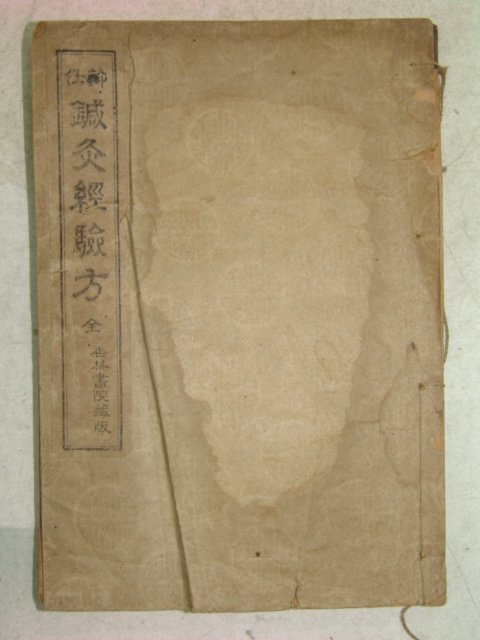 許任
鍼灸經驗方
全
杏林書院藏版